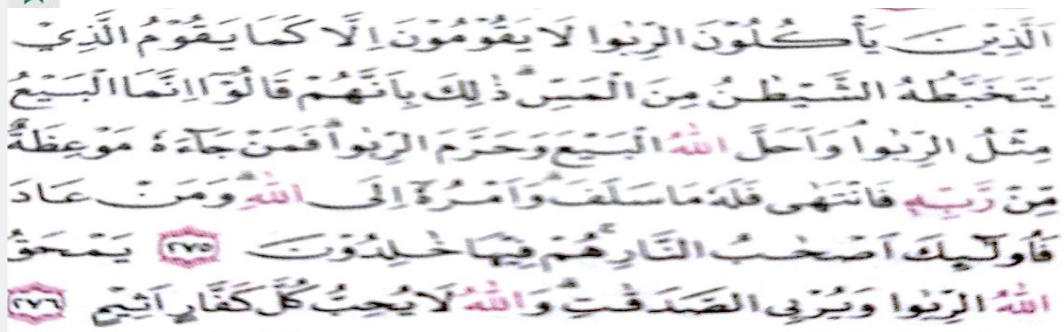 اَلَّذِيْنَ يَأْكُلُوْنَ الرِّبٰوا لَا يَقُوْمُوْنَ اِلَّا كَمَا يَقُوْمُ الَّذِيْ
يَتَخَبَّطُهُ الشَّيْطٰنُ مِنَ الْمَسِّ ۗ ذٰلِكَ بِاَنَّهُمْ قَالُوْٓا اِنَّمَا الْبَيْعُ
مِثْلُ الرِّبٰوا ۘ وَاَحَلَّ اللّٰهُ الْبَيْعَ وَحَرَّمَ الرِّبٰوا ۗ فَمَنْ جَآءَهٗ مَوْعِظَةٌ
مِّنْ رَّبِّهٖ فَانْتَهٰى فَلَهٗ مَا سَلَفَ ۗ وَاَمْرُهٗٓ اِلَى اللّٰهِ ۗ وَمَنْ عَادَ
فَاُولٰۤىِٕكَ اَصْحٰبُ النَّارِ ۚ هُمْ فِيْهَا خٰلِدُوْنَ ٢٧٥ يَمْحَقُ
اللّٰهُ الرِّبٰوا وَيُرْبِى الصَّدَقٰتِ ۗ وَاللّٰهُ لَا يُحِبُّ كُلَّ كَفَّارٍ اَثِيْمٍ ٢٧٦